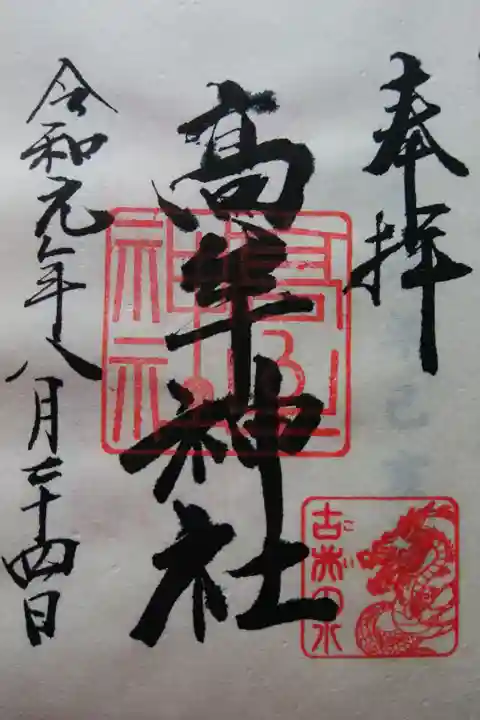 奉拝
高牟神社
令和元年八月二十四日
古井の水
こい